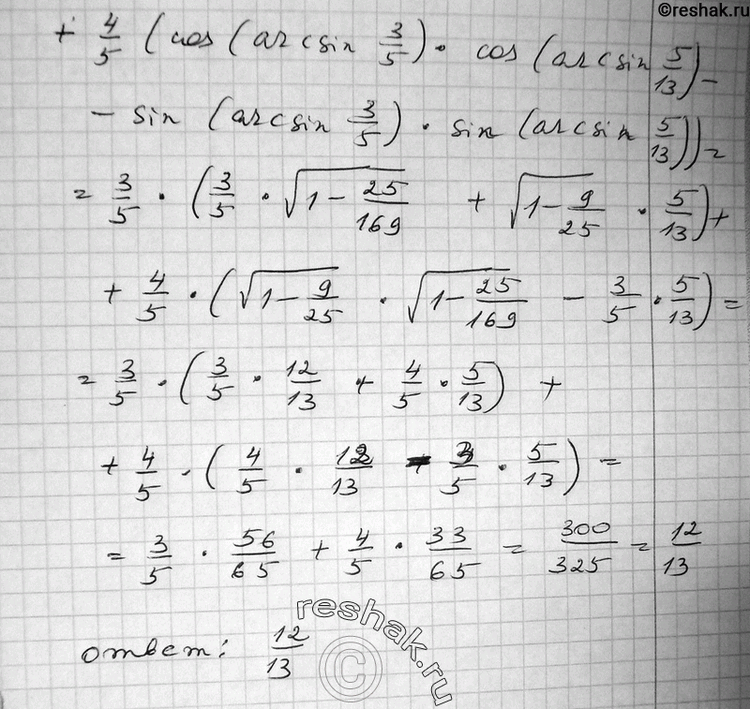 ©reshak.ru
+ 4/5 (cos (arcsin 3/5) · cos (arcsin 5/13) −
− sin (arcsin 3/5) · sin (arcsin 5/13)) =
= 3/5 · (3/5 · √(1 − 25/169) + √(1 − 9/25) · 5/13) +
+ 4/5 · (√(1 − 9/25) · √(1 − 25/169) − 3/5 · 5/13) =
= 3/5 · (3/5 · 12/13 + 4/5 · 5/13) +
+ 4/5 · (4/5 · 12/13 − 3/5 · 5/13) =
= 3/5 · 56/65 + 4/5 · 33/65 = 300/325 = 12/13
ответ: 12/13
reshak.ru
©